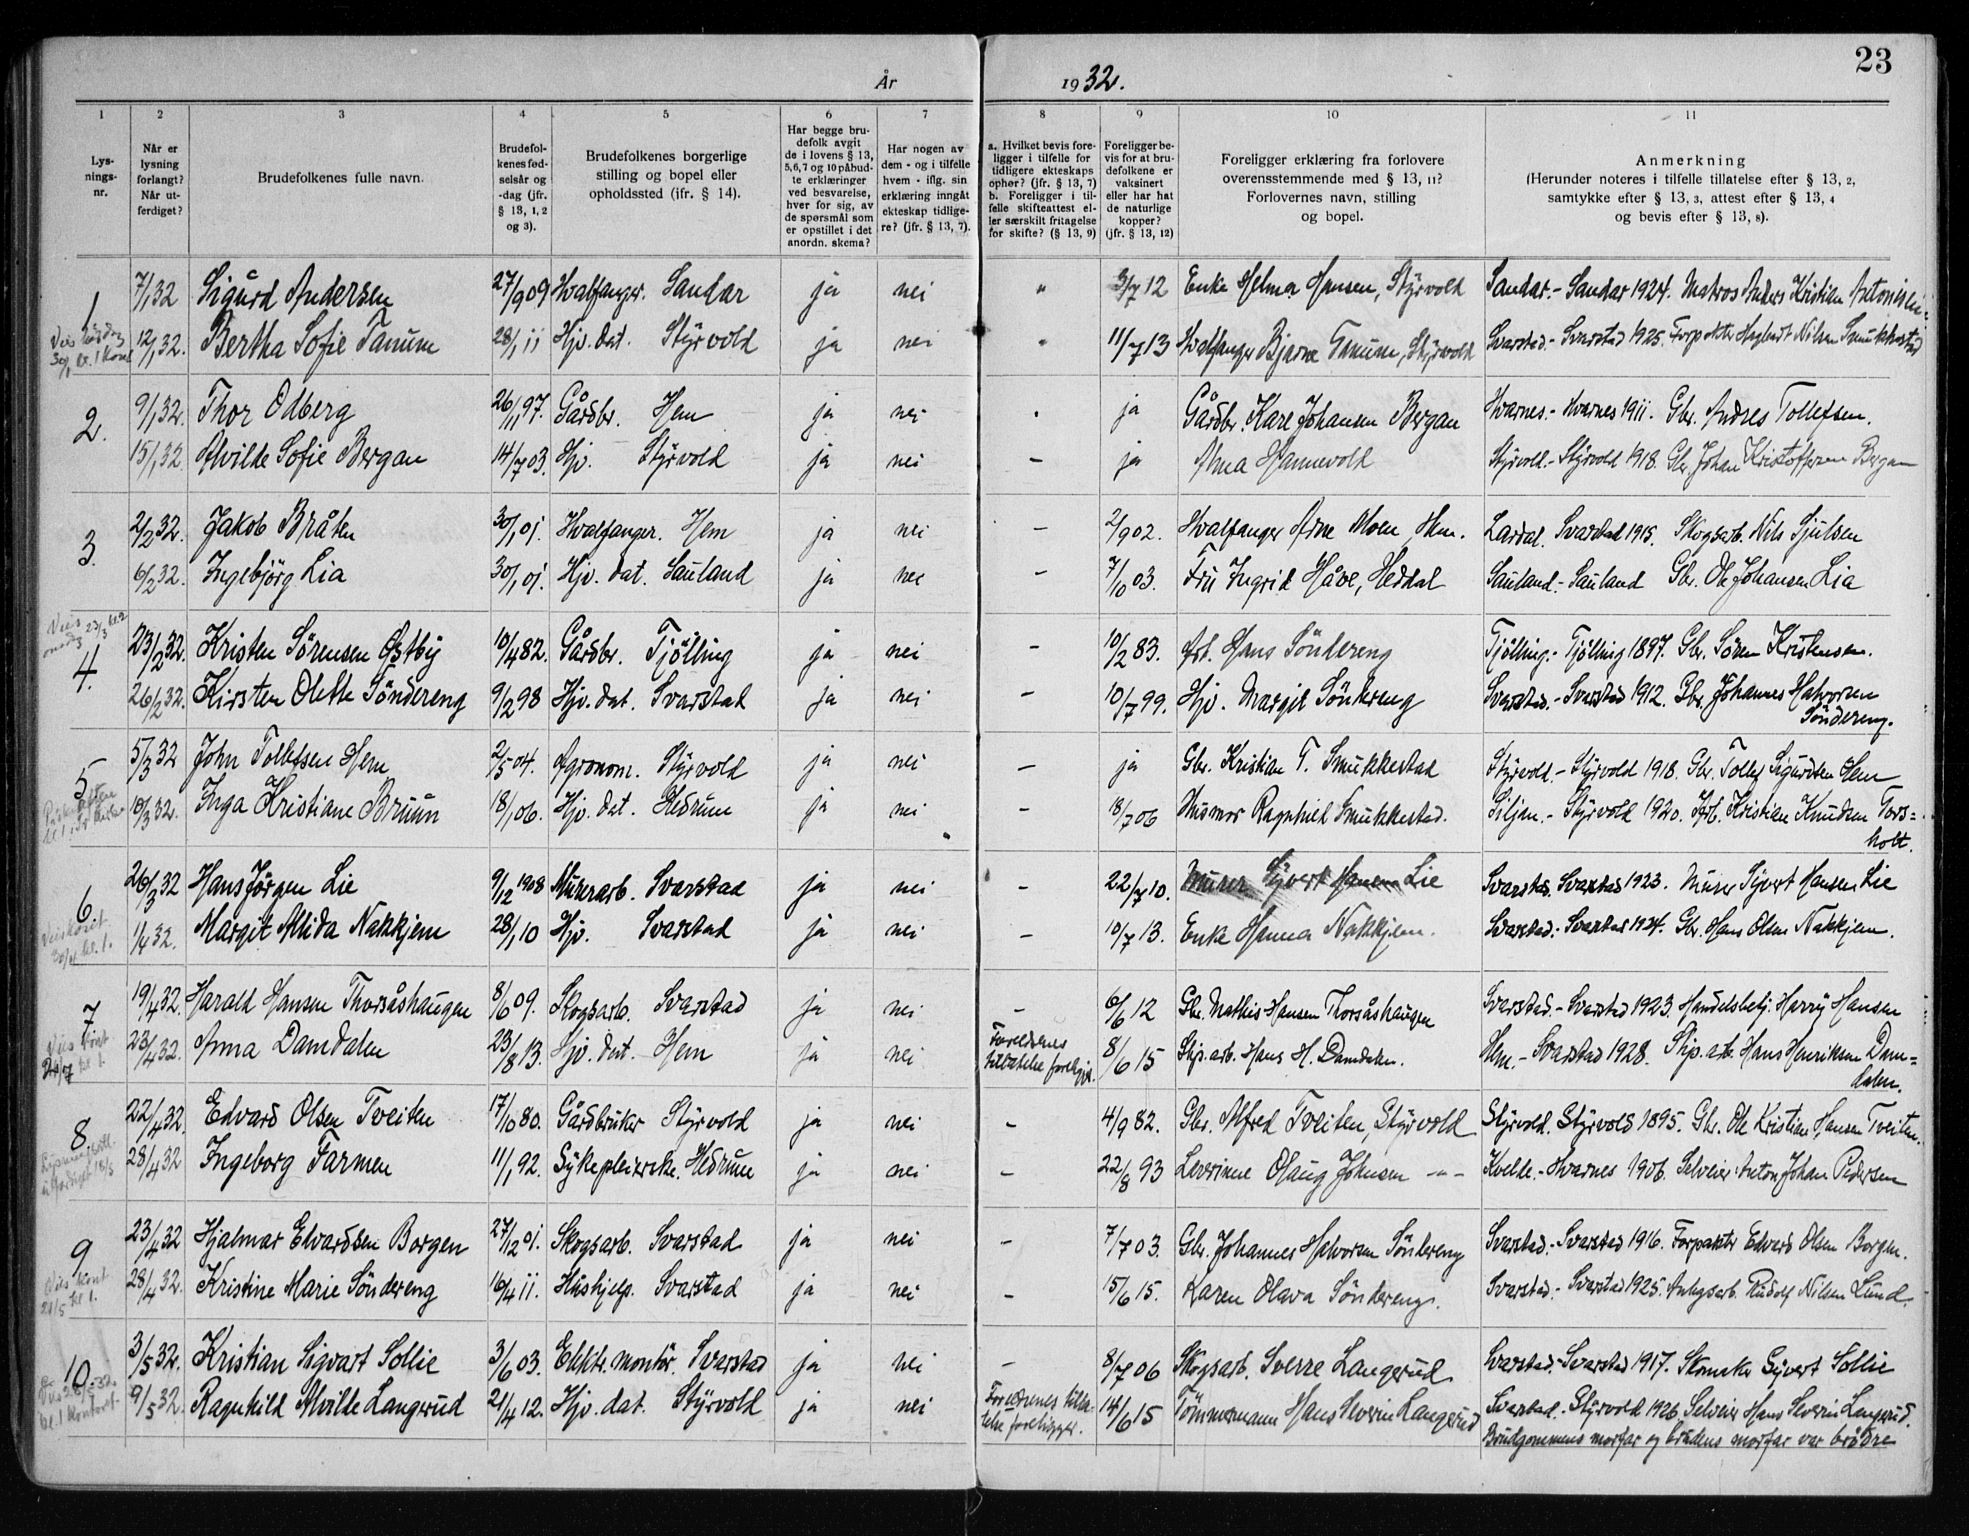 23
År 1932.
1 2 3 4 5 6 7 8 9 10 11
Lys-
nings-
nr.
Når er
lysning
forlangt?
Når ut-
ferdiget?
Brudefolkenes fulle navn.
Brudefol-
kenes fød-
selsår og
-dag (jfr.
§ 13, 1, 2
og 3).
Brudefolkenes borgerlige
stilling og bopel eller
opholdssted (ifr. § 14).
Har begge bru-
defolk avgit
de i lovens § 13,
5,6,7 og 10 påbud-
te erklæringer
ved besvarelse,
hver for sig, av
de spørsmål som
er opstillet i det
anordn. skema?
Har nogen av
dem - og i tilfelle
hvem - iflg. sin
erklæring inngått
ekteskap tidlige-
re? (jfr. § 13, 7).
a. Hvilket bevis fore-
ligger i tilfelle for
tidligere ekteskaps
ophør? (jfr. § 13, 7)
b. Foreligger i til-
felle skifteattest el-
ler særskilt fritagelse
for skifte? (§ 13, 9)
Foreligger be-
vis for at bru-
defolkene er
vaksinert
eller har hat
de naturlige
kopper?
(jfr. § 13, 12)
Foreligger erklæring fra forlovere
overensstemmende med § 13, 11?
Forlovernes navn, stilling
og bopel.
Anmerkning
(Herunder noteres i tilfelle tillatelse efter § 13, 2,
samtykke efter § 13, 3, attest efter § 13, 4
og bevis efter § 13, 8).
1 7/1 32 Sigurd Andersen 27/9 09 Hvalfanger. Sandar ja nei " 3/7 12 Enke Helma Hansen, Styrvold Sandar.- Sandar 1924. Matros Anders Kristian Antonisen
12/1 32. Bertha Sofie Tanum 28/1 11 Hjv. dat. Styrvold ja nei " 11/7 13 Hvalfanger Bjarne Tanum, Styrvold Svarstad.- Svarstad 1925. Forpakter Nilsen Smukkestad
30/1 kl. 1
2. 9/1 32. Thor Odberg 26/1 97. Gårdbr. Hem ja nei . ja Gårdbr. Kare Johansen Bergan Hvarnes.- Hvarnes 1911. Gbr. Andres Tollefsen.
15/1 32 Alvilde Sofie Bergan 14/7 03. Hjv. Styrvold ja nei - ja Alma Hannevold Styrvold.- Styrvold 1918. Gbr. Johan Kristoffersen Bergan
3. 2/2 32. Jakob Bråten 30/1 01. Hvalfanger. Hem ja nei - 2/9 02. Hvalfanger Arne Moen Hem. Lardal. Svarstad 1915. Skogsarb. Nils Sjulsen
6/2 32. Ingebjörg Lia 30/1 01. Hjv. dat. Sauland ja nei - 7/10 03. Fru Ingrid Håve, Heddal Sauland.- Sauland Gbr. Ole Johansen Lia
Vies onsdg 23/3 kl. 2
4. 23/2 32. Kristen Sörensen Østby 10/4 82. Gårdbr. Tjölling ja nei - 10/2 83. Arb. Hans Söndereng Tjölling.- Tjölling 1897. Gbr. Sören Kristensen.
26/2 32. Kirsten Olette Söndereng 9/2 98 Hjv. dat. Svarstad ja nei - 10/7 99. Hjv. Margit Söndereng Svarstad.- Svarstad 1912. Gbr. Johannes Halvorsen
Söndereng.
5 5/3 32 John Tollefsen Hem 2/5 04. Agronom. Styrvold ja nei - ja Gbr. Kristian T. Smukkestad Styrvold.- Styrvold 1918. Gbr. Tollef Sigurdsen Hem
10/3 32. Inga Kristiane Bruun 18/1 06. Hjv. dat. Hedrum ja nei - 18/7 06 Husmor Ragnhild Smukkestad. Siljan.- Styrvold 1920. Arb. Kristian Knudsen Tors=
holt.
6 26/3 32 Hans Jörgen Lie 9/12 1908 Murerarb. Svarstad ja nei - 22/7 10. Murer Syvert Hansen Lie Svarstad. Svarstad 1923. Murer Sivert Hansen Lie
1/4 32. Margit Alida Nakkjem 28/1 10 Hjv. Svarstad ja nei - 10/7 13. Enke Hanna Nakkjem. Svarstad.- Svarstad 1924. Gbr. Hans Olsen Nakkjem.
30/4 kl. 1.
7 19/4 32. Harald Hansen Thorsåshaugen 8/6 09. Skogsarb. Svarstad ja nei - 6/6 12 Gbr. Mathis Hansen Thorsåshaugen Svarstad.- Svarstad 1923. Handelsbetj. Harry Hansen
23/4 32. Anna Damdalen 23/8 13. Hjv. dat. Hem ja nei Foreldrenes
tillatelse foreligger. 8/6 15 Skp. arb. Hans H. Damdalen. Hem.- Svarstad 1928. Skp. arb. Hans Henriksen Dam=
dalen.
Vies kont. kl 1.
8 22/4 32. Edvard Olsen Tveiten 17/10 80. Gårdbruker Styrvold ja nei - 4/9 82. Gbr. Alfred Tveiten, Styrvold Styrvold. Styrvold 1895. Gbr. Ole Kristian Hansen Tveiten.
28/4 32 Ingeborg Farmen 11/1 92. Sykepleierske. Hedrum ja nei - 22/8 93 Leverinne Olaug Johnsen -"- Kvelde.- Hvarnes 1906. Selveier Anton Johan Pedersen
9 23/4 32 Hjalmar Edvardsen Borgen 27/12 01. Skogsarb. Svarstad ja nei - 7/7 03. Gbr. Johannes Halvorsen Söndereng Svarstad.- Svarstad 1916. Forpakter Edvard Olsen Borgen.
28/4 32. Kristine Marie Söndereng 16/4 11. Hushjelp. Svarstad ja nei - 15/6 15. Karen Olava Söndereng. Svarstad.- Svarstad 1925. Anlegsarb. Rudolf Nilsen Lund.
Vies kont. 21/5 kl 1.
10. 3/5 32. Kristian Sigvart Sollie 3/6 03. Elektr. montör. Svarstad ja nei - 8/7 06 Skogsarb. Sverre Langerud Svarstad.- Svarstad 1917. Skomaker Syvert Sollie
9/5 32. Ragnhild Alvilde Langerud 21/4 12. Hjv. dat. Styrvold ja nei Foreldrenes tilla-
telse foreligger. 14/6 15 Tömmermann Hans Severin Langerud Svarstad.- Styrvold 1926. Selveier Hans Severin Langerud.
kl. 1 Kontoret.
Brudgommens morfar og brudens morfar var brödre